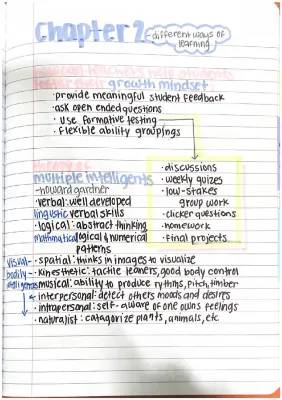 Chapter 2
-different ways of
learning
growth mindset
·provide meaningful student feedback
·ask open ended questions
· use formative testing
· flexible ability groupings
·discussions
·weekly quizes
·low-stakes
group work
·clicker questions
·homework
·final projects
theory of
multiple intelligents
-howard gardner
·verbal: well developed
linguistic verbal skills
·logical: abstract thinking
mathmatical logical & numerical
patterns
visual- ·spatial: thinks in images to visualize
bodily- ·kinesthetic: tactile leaners, good body control
·musical: ability to produce rythms, pitch, timber
·interpersonal: detect others moods and desires
·intrapersonal: self-aware of one owns feelings
·naturalist: catagorize plants, animals, etc